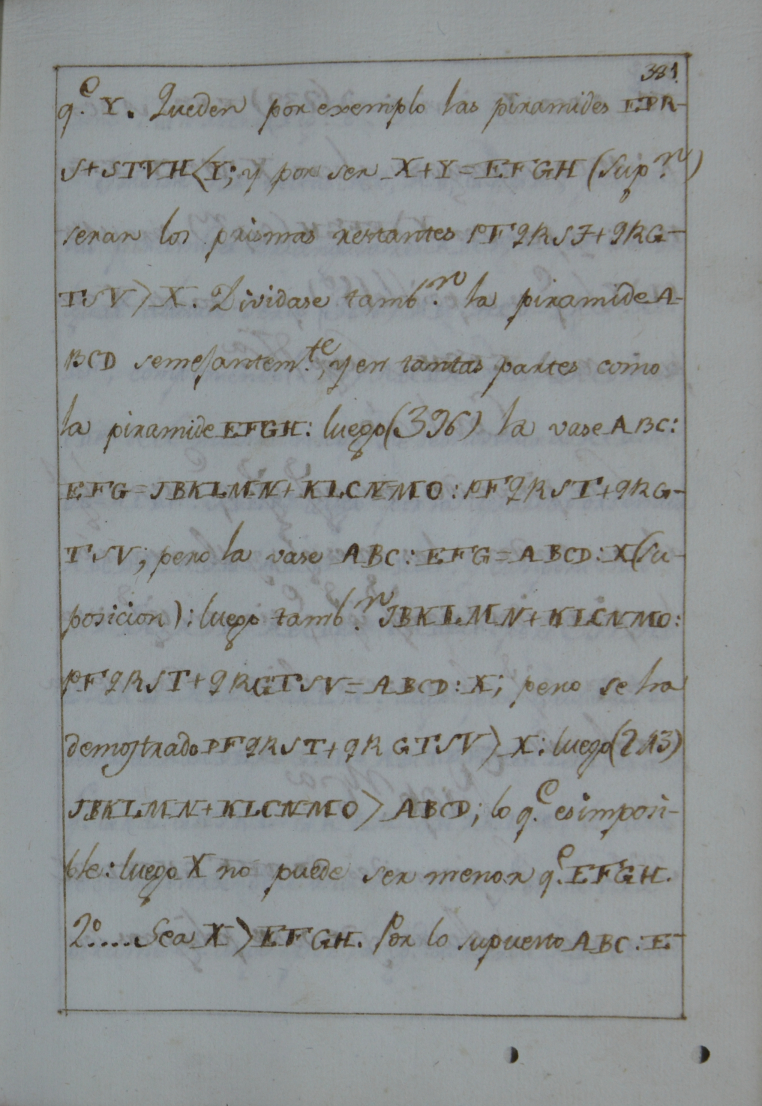 381.
q.e Y. Queden por exemplo las piramides EPR-
S+STVH<Y; y por ser X+Y=EFGH (sup.n)
seran los prismas restantes PFQRST+QRG-
TSV>X. Dividase tamb.n la piramide A-
BCD semejantem.te, y en tantas partes como
la piramide EFGH: luego (396) la vase ABC:
EFG=JBKLMN+KLCNMO:PFQRST+QRG-
TSV; pero la vase ABC:EFG=ABCD:X (su-
posicion): luego tamb.n JBKLMN+KLCNMO:
PFQRST+QRGTSV=ABCD:X; pero se ha
demostrado PFQRST+QRGTSV>X: luego (213)
JBKLMN+KLCNMO>ABCD; lo q.e es imposi-
ble: luego X no puede ser menor q.e EFGH.
2º.... Sea X>EFGH. Por lo supuesto ABC:E-